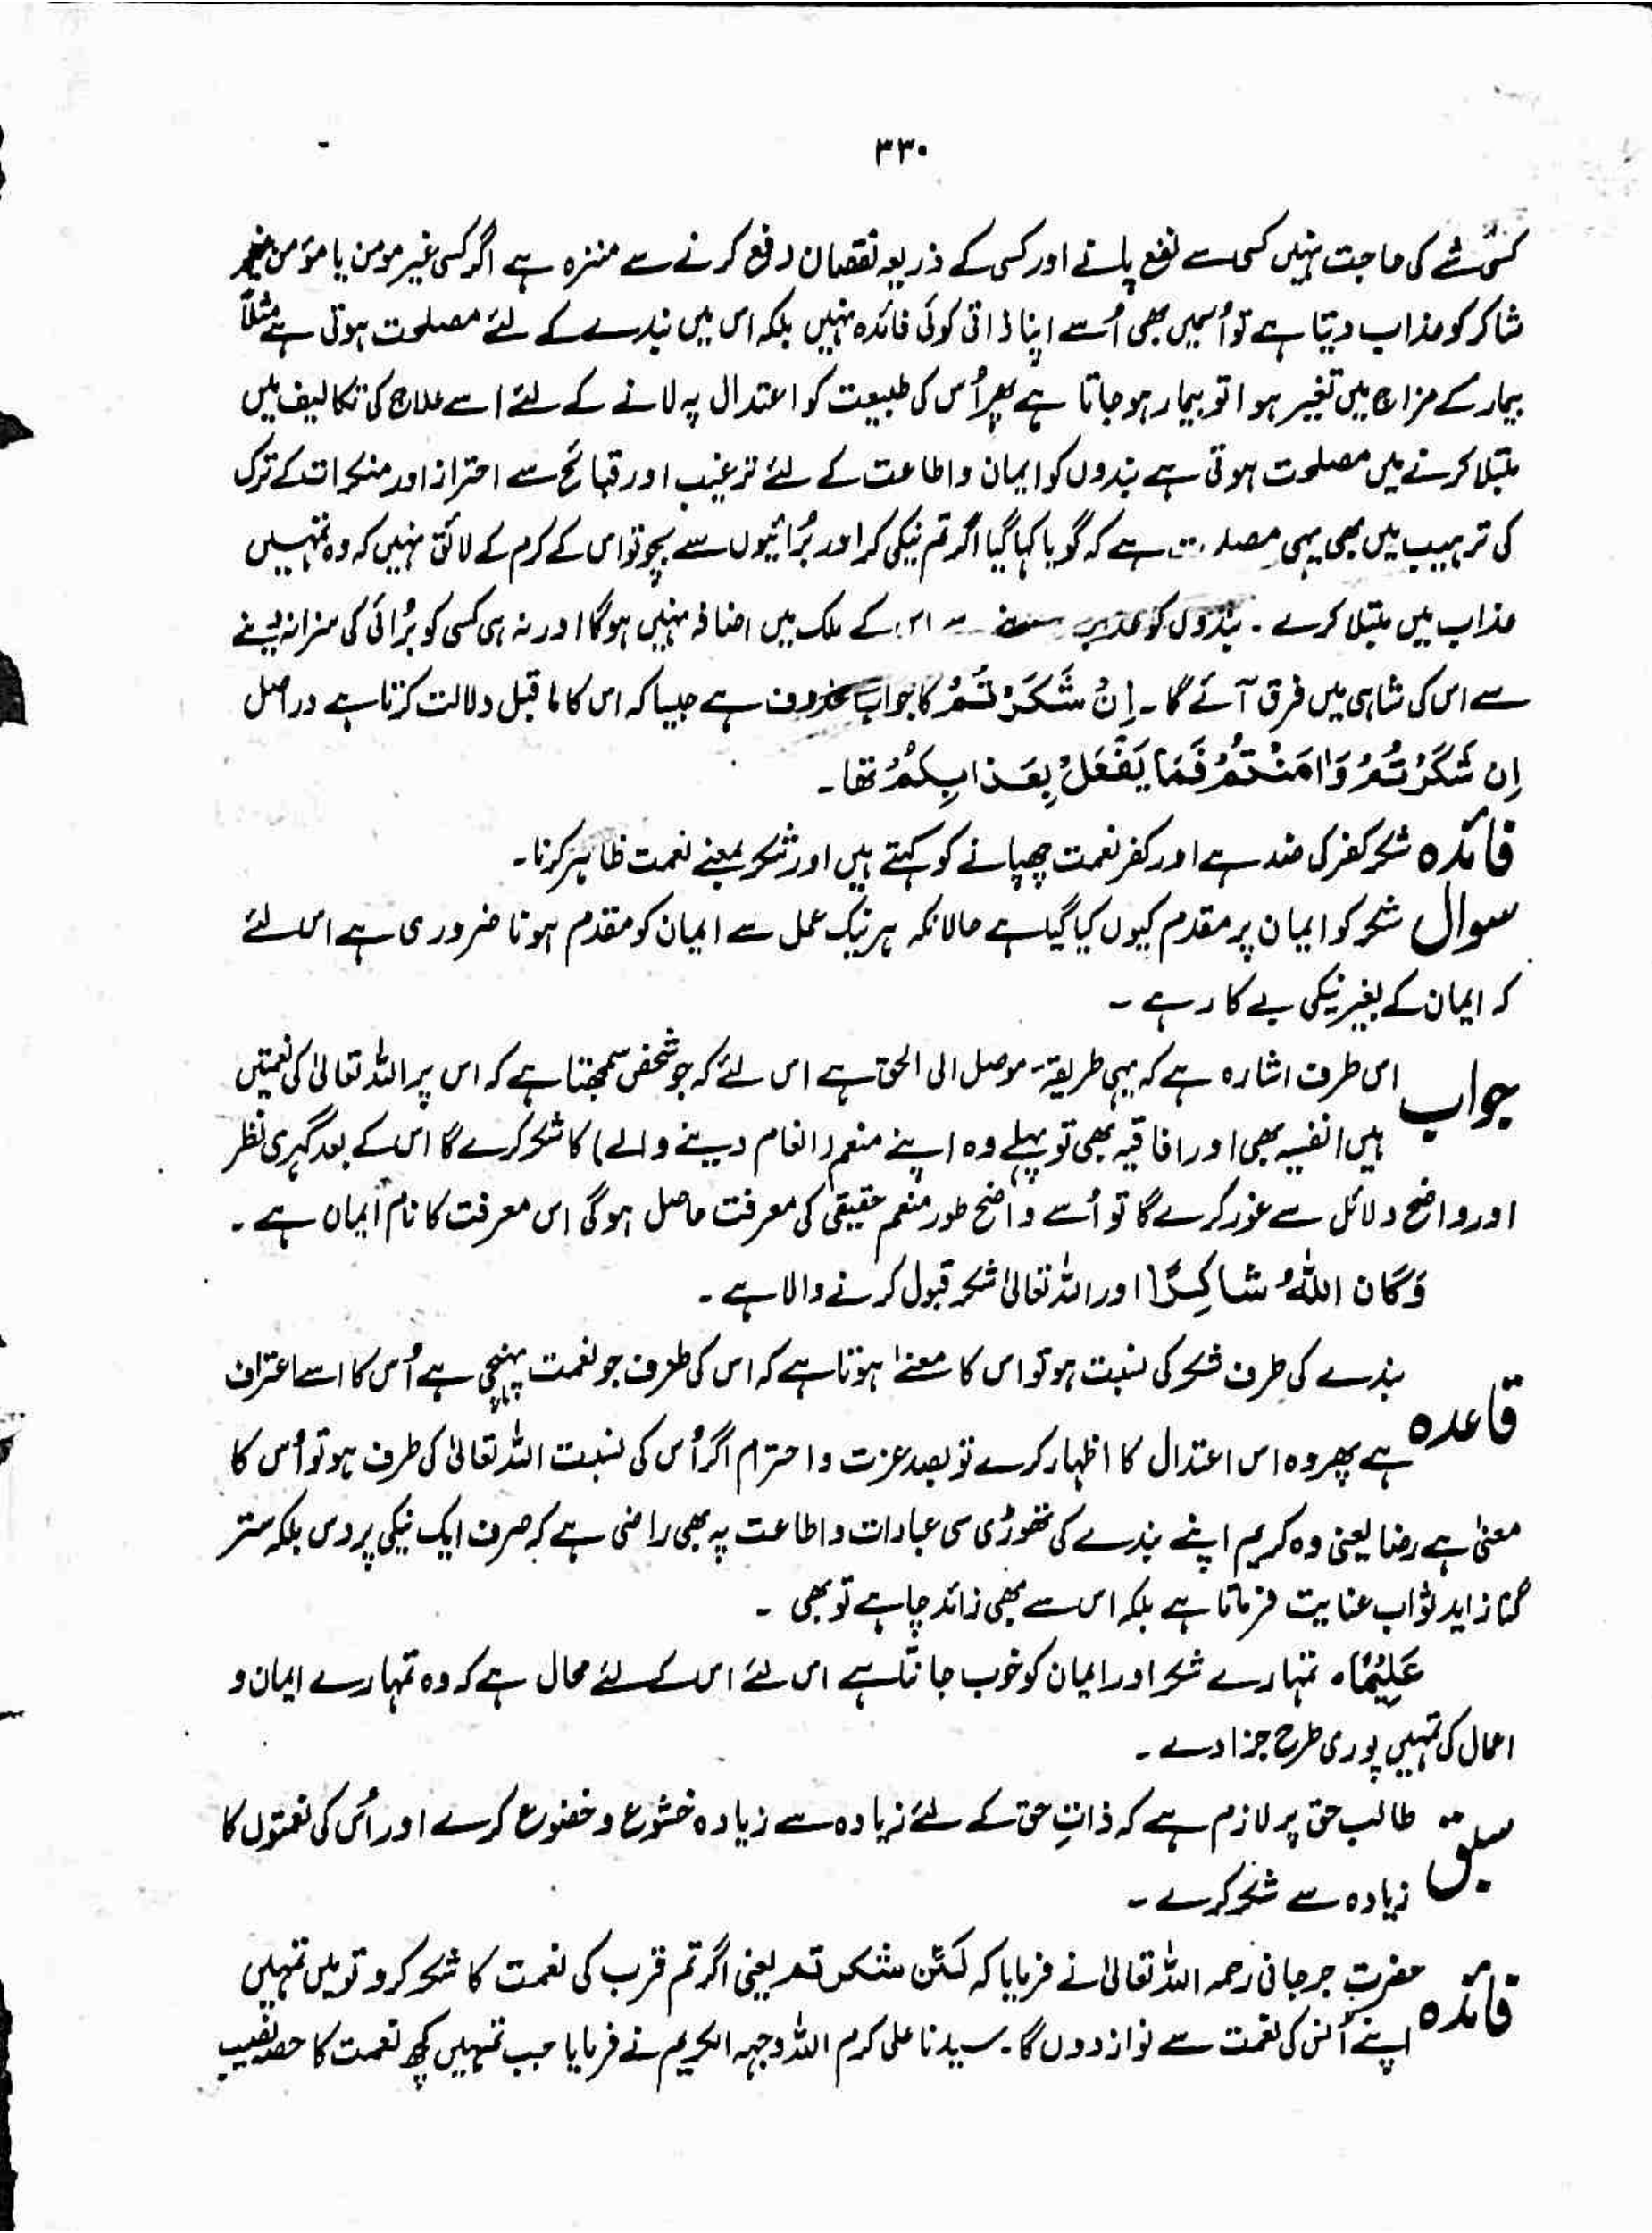 ۳۳۰
کسی شے کی حاجت نہیں کسی سے نفع پانے اور کسی کے ذریعہ نقصان دفع کرنے سے منزہ ہے اگر کسی غیر مومن یا مؤمن غیر
شاکر کو عذاب دیتا ہے تو اُسمیں بھی اُسے اپنا ذاتی کوئی فائدہ نہیں بلکہ اس میں بندے کے لئے مصلحت ہوتی ہے مثلاً
بیمار کے مزاج میں تغیر ہوا تو بیمار ہو جاتا ہے پھر اُس کی طبیعت کو اعتدال پہ لانے کے لئے اسے علاج کی تکالیف میں
مبتلا کرنے میں مصلحت ہوتی ہے بندوں کو ایمان و اطاعت کے لئے ترغیب اور قبائح سے احتراز اور منکرات کے ترک
کی ترہیب میں بھی یہی مصلحت ہے کہ گویا کہا گیا اگر تم نیکی کرو اور بُرائیوں سے بچو تو اس کے کرم کے لائق نہیں کہ وہ تمہیں
عذاب میں مبتلا کرے ۔ بندوں کو سے اس کے ملک میں اضافہ نہیں ہوگا اور نہ ہی کسی کو بُرائی کی سزا نہ دینے
سے اس کی شاہی میں فرق آئے گا ۔ اِنْ شَکَرْتُمْ کا جواب محذوف ہے جیسا کہ اس کا ما قبل دلالت کرتا ہے در اصل
اِن شَکَرْتُمْ وَاٰمَنْتُمْ فَمَا یَفْعَلُ بِعَذَابِکُمْ تھا ۔
فائدہ شکر کفر کی ضد ہے اور کفر نعمت چھپانے کو کہتے ہیں اور شکر بمعنے نعمت ظاہر کرنا ۔
سوال شکر کو ایمان پر مقدم کیوں کیا گیا ہے حالانکہ ہر نیک عمل سے ایمان کو مقدم ہونا ضروری ہے اس لئے
کہ ایمان کے بغیر نیکی بے کار ہے ۔
جواب اس طرف اشارہ ہے کہ یہی طریقہ موصل الی الحق ہے اس لئے کہ جو شخص سمجھتا ہے کہ اس پر اللہ تعالیٰ کی نعمتیں
ہیں انفسیہ بھی اور افاقیہ بھی تو پہلے وہ اپنے منعم (انعام دینے والے) کا شکر کرے گا اس کے بعد گہری نظر
اور واضح دلائل سے غور کرے گا تو اُسے واضح طور منعم حقیقی کی معرفت حاصل ہو گی اس معرفت کا نام ایمان ہے ۔
وَکَانَ اللّٰہُ شَاکِرًا اور اللہ تعالیٰ شکر قبول کرنے والا ہے ۔
قاعدہ بندے کی طرف شکر کی نسبت ہو تو اس کا معنےٰ ہوتا ہے کہ اس کی طرف جو نعمت پہنچی ہے اُس کا اسے اعتراف
ہے پھر وہ اس اعتدال کا اظہار کرے تو بصد عزت و احترام اگر اُس کی نسبت اللہ تعالیٰ کی طرف ہو تو اُس کا
معنیٰ ہے رضا یعنی وہ کریم اپنے بندے کی تھوڑی سی عبادات و اطاعت پہ بھی راضی ہے کہ صرف ایک نیکی پر دس بلکہ ستر
گنا زاید ثواب عنایت فرماتا ہے بلکہ اس سے بھی زائد چاہے تو بھی ۔
عَلِیْمًاہ تمہارے شکر اور ایمان کو خوب جانتا ہے اس لئے اس کے لئے محال ہے کہ وہ تمہارے ایمان و
اعمال کی تمہیں پوری طرح جزا دے ۔
سبق طالب حق پر لازم ہے کہ ذاتِ حق کے لئے زیادہ سے زیادہ خشوع و خضوع کرے اور اُس کی نعمتوں کا
زیادہ سے شکر کرے ۔
فائدہ حضرت جرجانی رحمہ اللہ تعالیٰ نے فرمایا کہ لَئِن شکرتم یعنی اگر تم قرب کی نعمت کا شکر کرو تو میں تمہیں
اپنے اُنس کی نعمت سے نواز دوں گا ۔ سیدنا علی کرم اللہ وجہہ الکریم نے فرمایا جب تمہیں کچھ نعمت کا حصہ نصیب